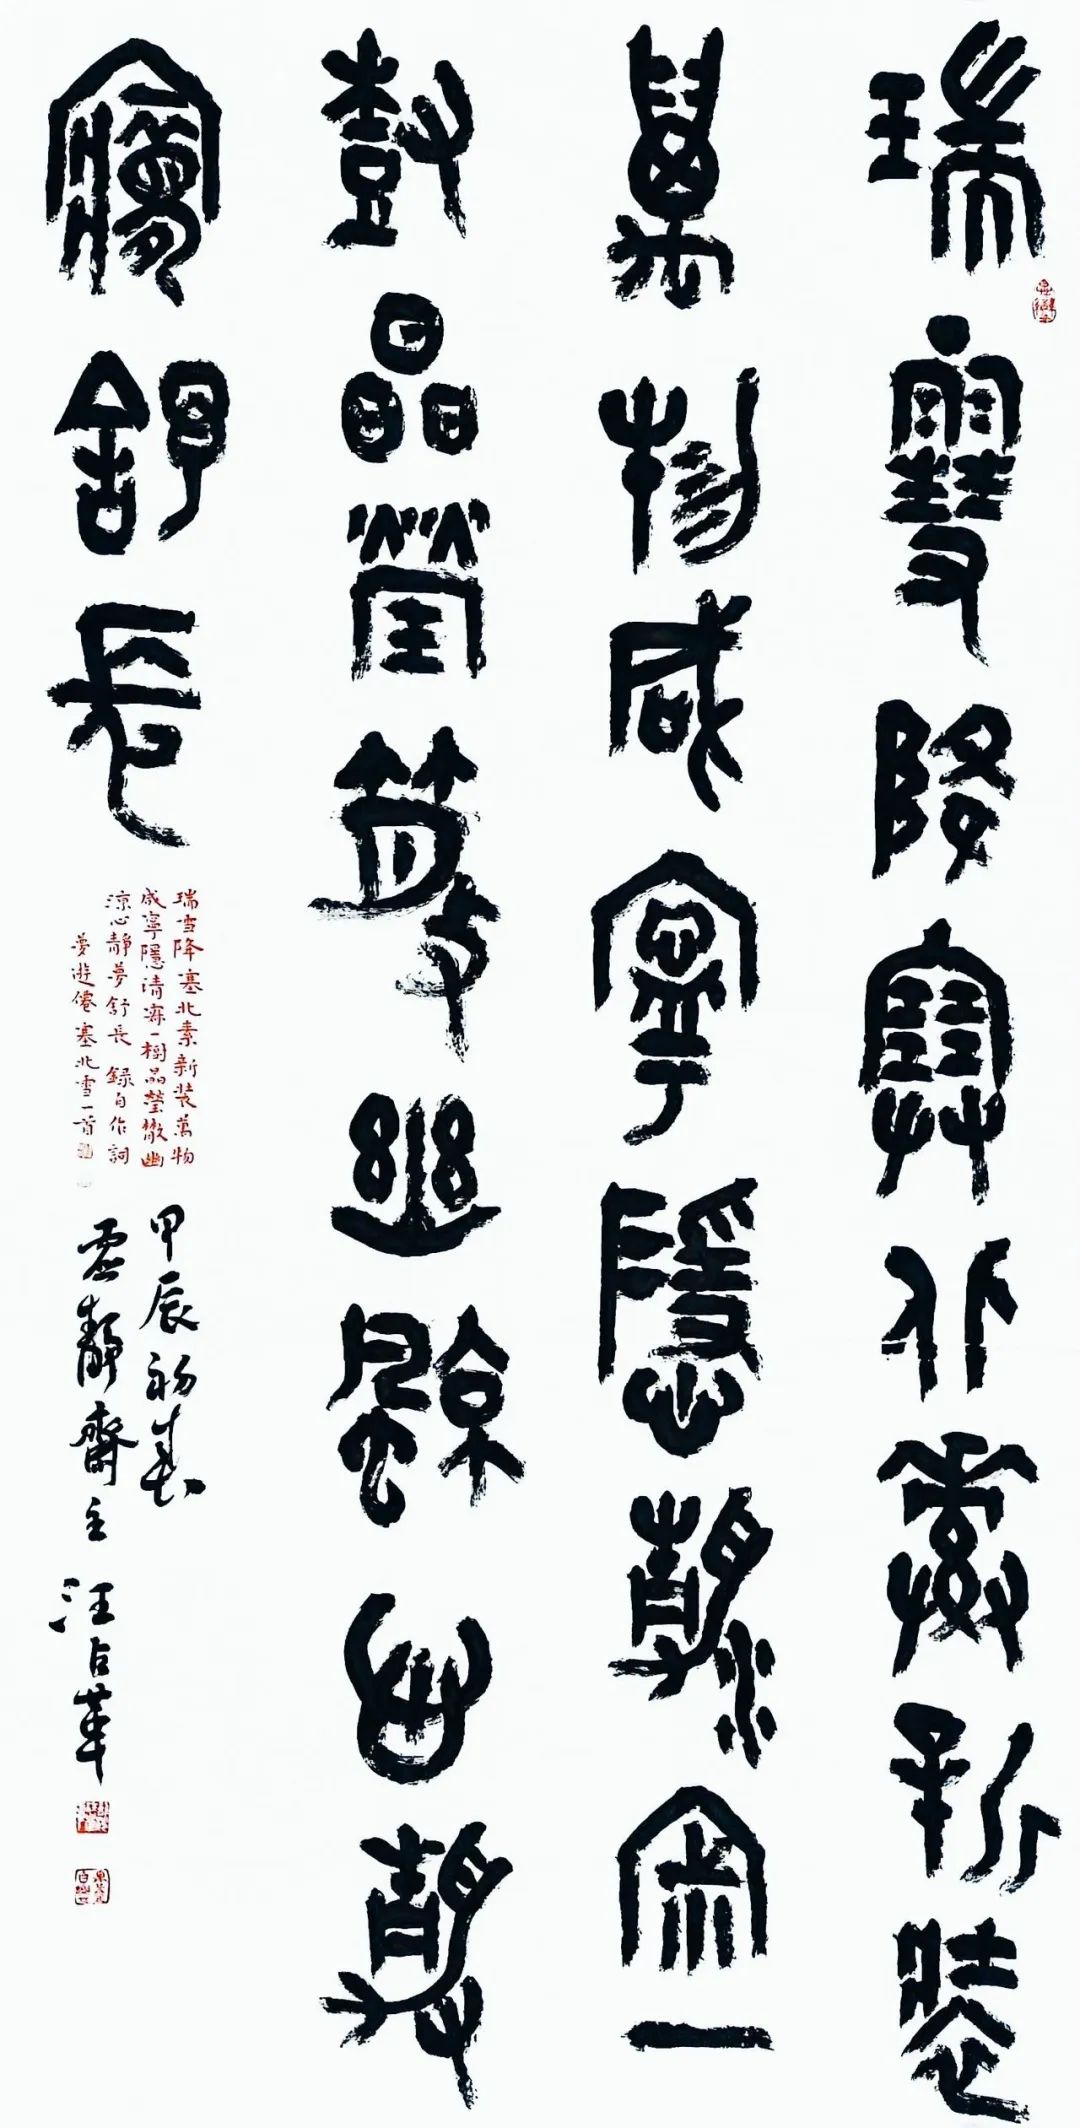 瑞雪降塞北素新裝
萬物咸寧隱清寂一
樹晶瑩散幽涼心靜
夢舒長
瑞雪降塞北素新裝萬物
咸寧隱清寂一樹晶瑩散幽
涼心靜夢舒長 錄自作詞
夢遊僊塞北雪一首
甲辰初春
虛靜齋主 汪占革